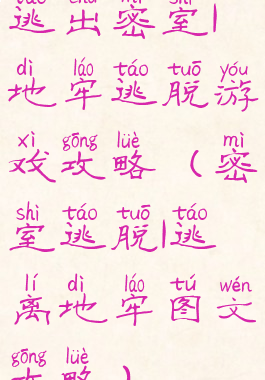 táo chū mì shì
逃出密室|
dì láo táo tuō yóu
地牢逃脱游
xì gōng lüè mì
戏攻略(密
shì táo tuō táo
室逃脱|逃
lí dì láo tú wén
离地牢图文
gōng lüè
攻略)